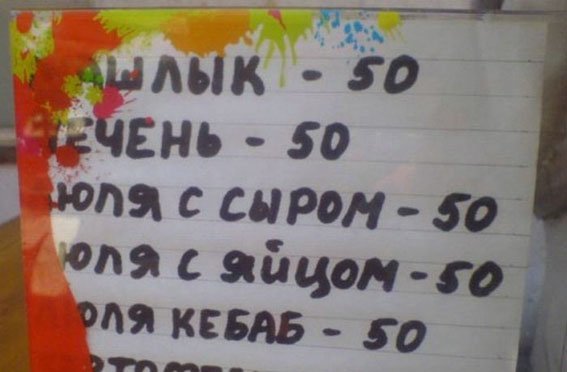 ШАШЛЫК - 50
ПЕЧЕНЬ - 50
ЮЛЯ С СЫРОМ - 50
ЮЛЯ С ЯЙЦОМ - 50
ЮЛЯ КЕБАБ - 50